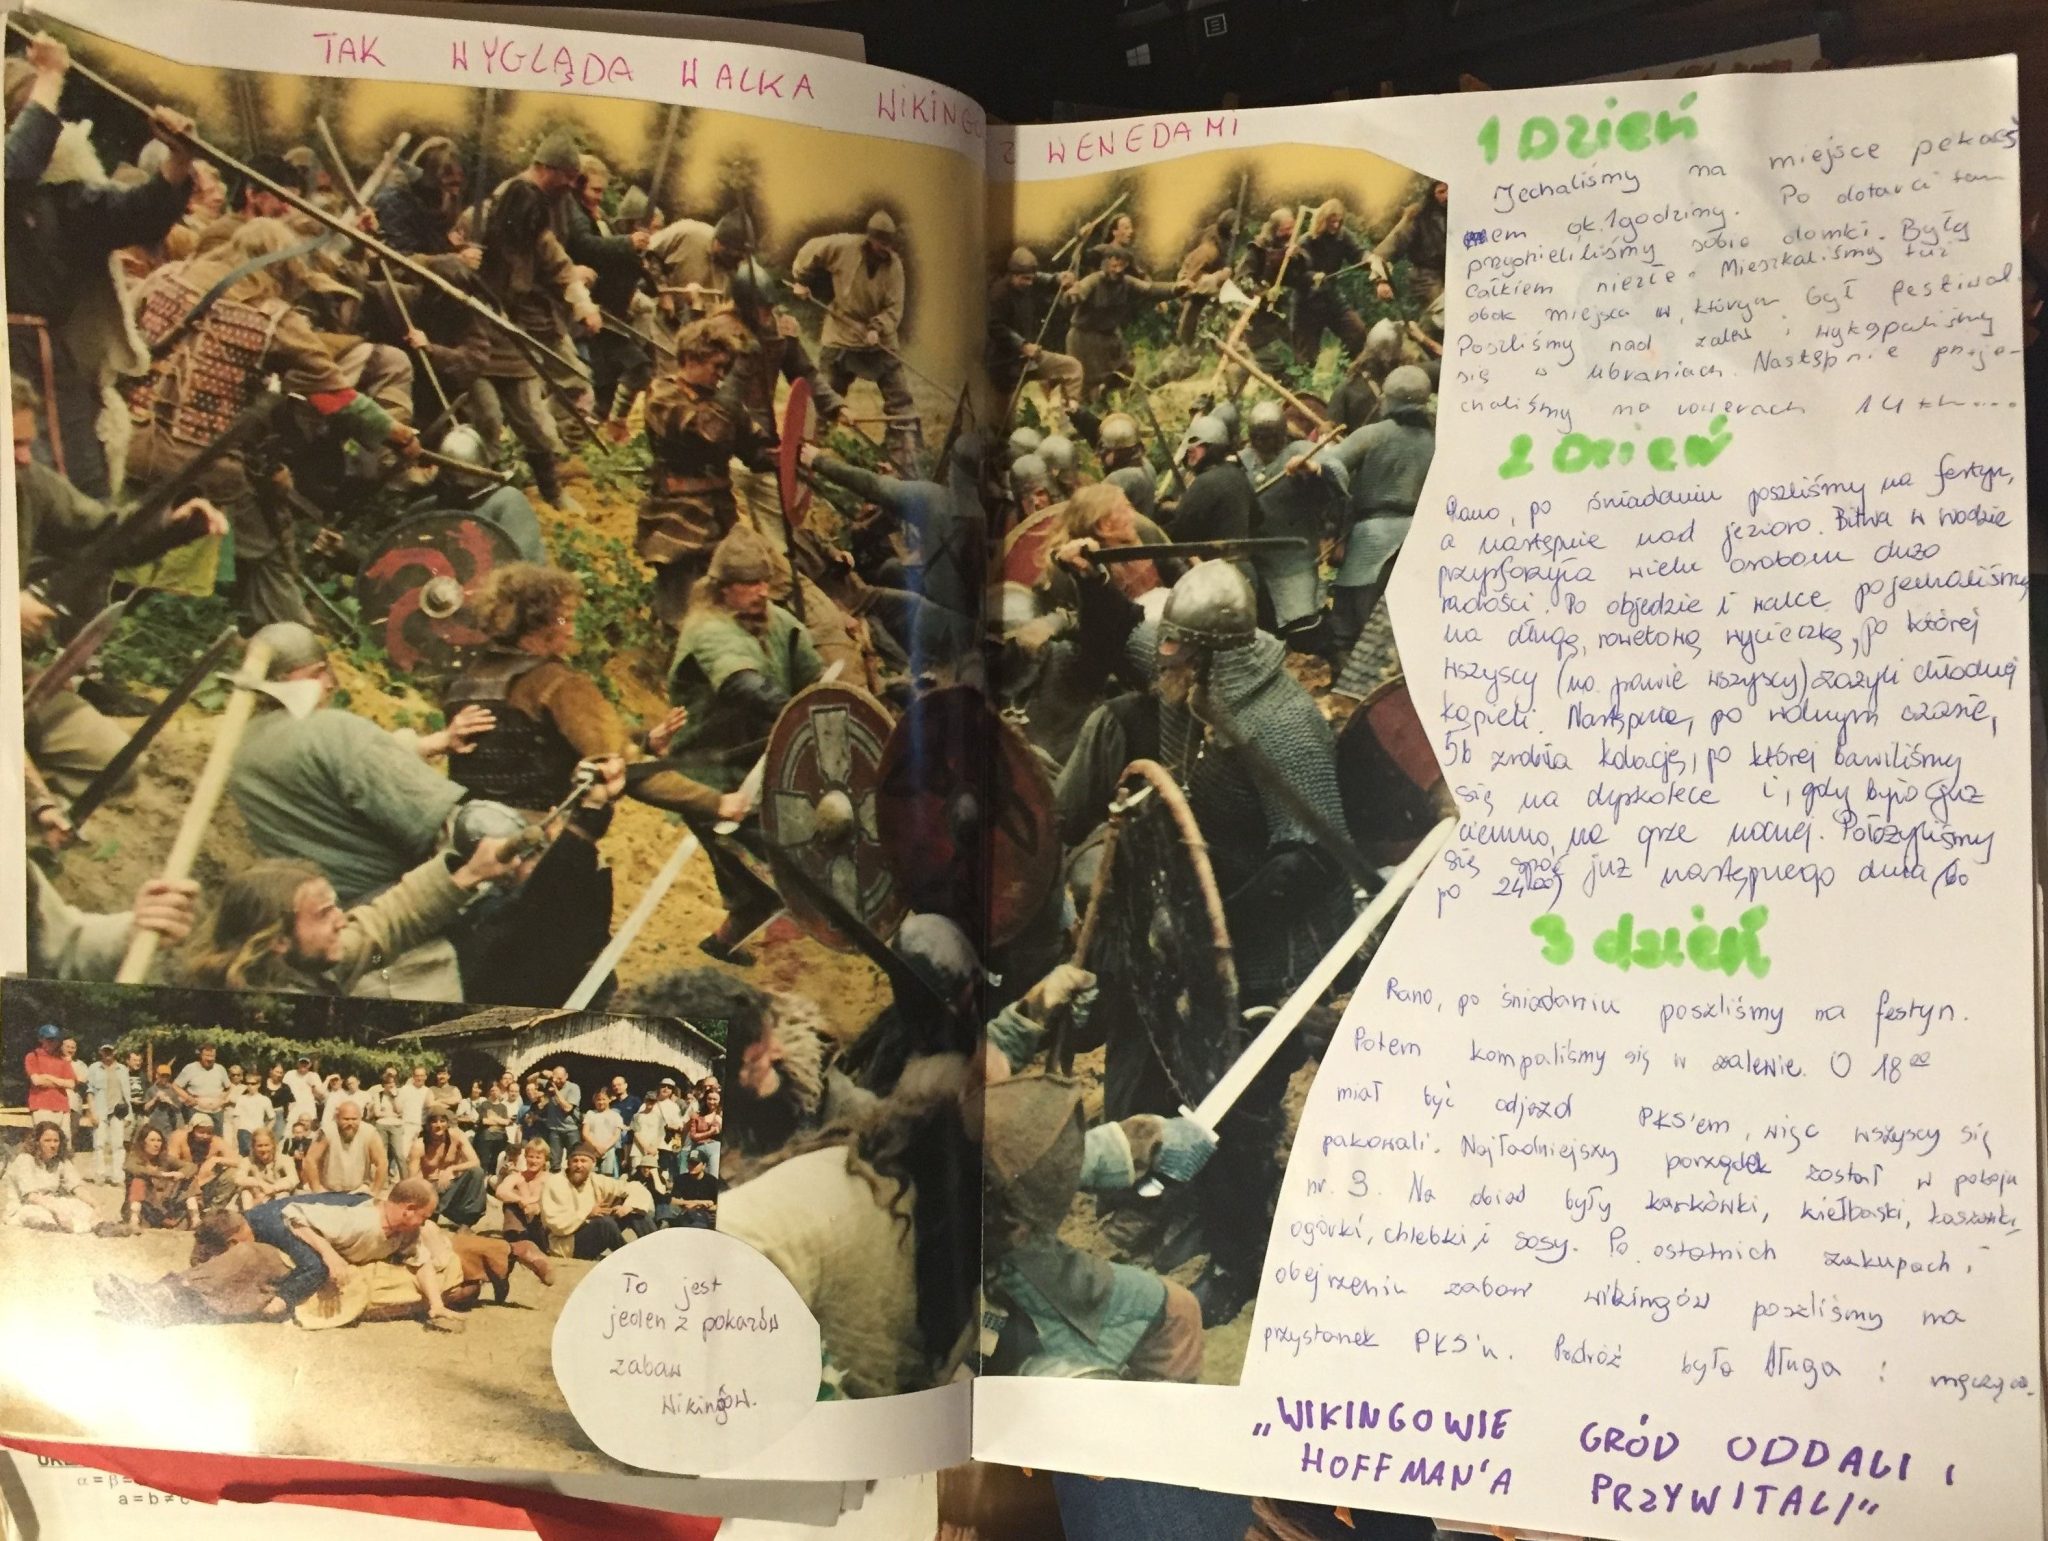 TAK WYGLĄDA WALKA WIKINGÓ
Z WENEDAMI
1 Dzień
Jechaliśmy na miejsce pekaes
em ok. 1 godziny. Po dotarci tam
przydzieliliśmy sobie domki. Były
całkiem niezłe. Mieszkaliśmy tuż
obok miejsca w, którym był festiwal.
Poszliśmy nad zalew i wykąpaliśmy
się w ubraniach. Następnie przeje-
chaliśmy na rowerach 14
2 Dzień
Rano, po śniadaniu poszliśmy na festyn,
a następnie nad jezioro. Bitwa w wodzie
przysporzyła wielu osobom dużo
radości. Po objedzie i walce pojechaliśmy
na długą, rowerową wycieczkę, po której
wszyscy (no prawie wszyscy) zażyli chłodnej
kąpieli. Następnie, po wolnym czasie,
5b zrobiła kolację, po której bawiliśmy
się na dyskotece i, gdy było już
ciemno, na grze nocnej. Położyliśmy
się spać już następnego dnia (bo
po 24⁰⁰)
3 dzień
Rano, po śniadaniu poszliśmy na festyn.
Potem kompaliśmy się w zalewie. O 18⁰⁰
miał być odjazd PKS'em, więc wszyscy się
pakowali. Najładniejszy porządek został w pokoju
nr. 3. Na obiad były karkówki, kiełbaski,
ogórki, chlebki, i sosy. Po ostatnich zakupach i
obejrzeniu zabaw wikingów poszliśmy na
przystanek PKS'u. Podróż była długa i męcząca.
„WIKINGOWIE GRÓD ODDALI I
HOFFMAN'A PRZYWITALI"
To jest
jeden z pokazów
zabaw
Wikingów.
α = β =
a = b ≠ c